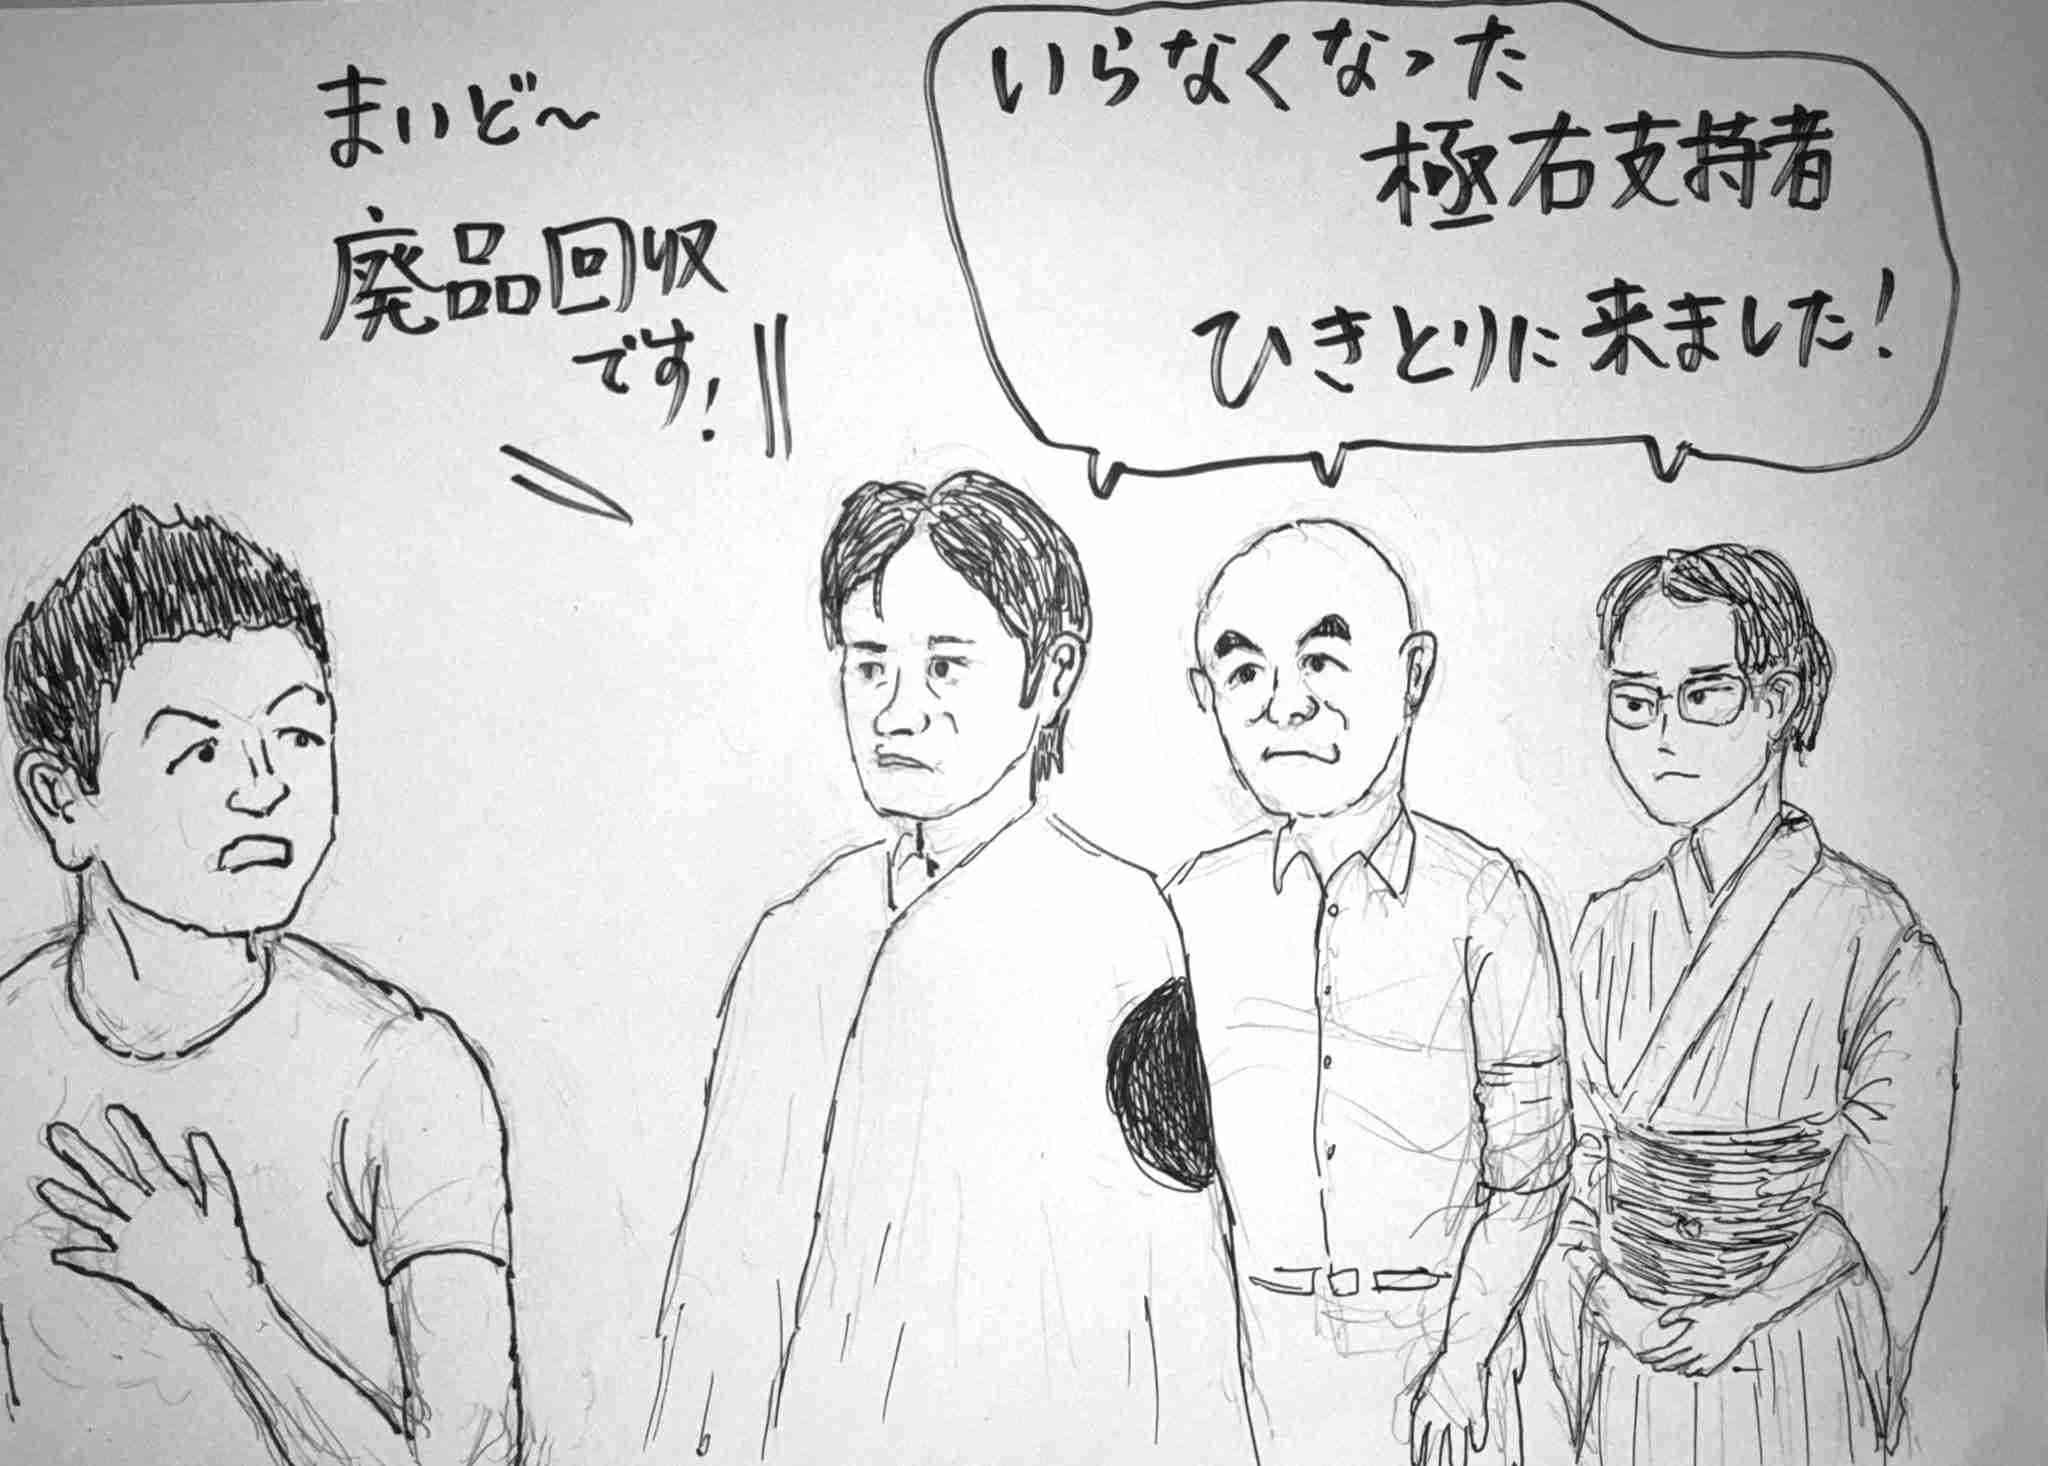 まいど〜
廃品回収
です!
いらなくなった
極右支持者
ひきとりに来ました!